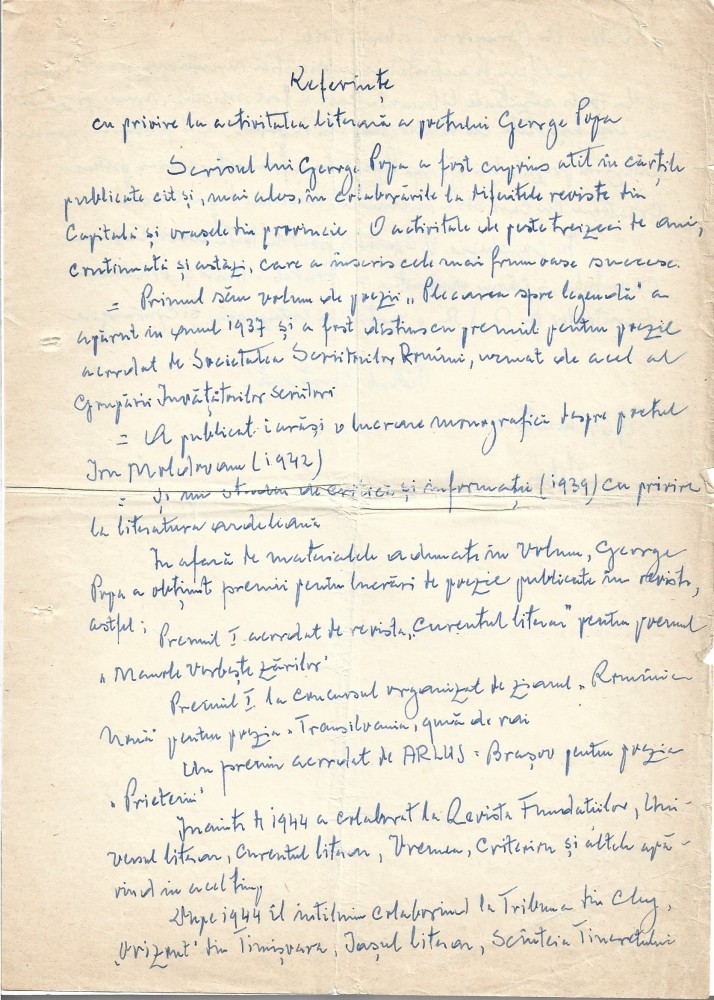 Referințe
cu privire la activitatea literară a poetului George Popa
Scrisul lui George Popa a fost cuprins atît în cărțile
publicate cît și, mai ales, în colaborările la diferitele reviste din
Capitală și orașele din provincie. O activitate de peste treizeci de ani,
continuată și astăzi, care a înscris cele mai frumoase succese.
= Primul său volum de poezii „Plecarea spre legendă" a
apărut în anul 1937 și a fost distins cu premiul pentru poezie
acordat de Societatea Scriitorilor Români, urmat de acel al
Grupării Învățătorilor Scriitori
= A publicat iarăși o lucrare monografică despre poetul
Ion Moldovanu (1942)
= Și un studiu de critică și informație (1939) cu privire
la literatura ardeleană
În afară de materialele adunate în volum, George
Popa a obținut premii pentru lucrări de poezie publicate în reviste,
astfel:
Premiul I acordat de revista „Curentul literar" pentru poemul
„Manole vorbește zărilor"
Premiul I la concursul organizat de ziarul „România
Nouă" pentru poezia „Transilvania, gură de rai
Un premiu acordat de ARLUS = Brașov pentru poezia
„Prietenii"
Înainte de 1944 a colaborat la Revista Fundațiilor, Uni-
versul literar, Curentul literar, Vremea, Criterion și altele apă-
rînd în acel timp
După 1944 îl întîlnim colaborînd la Tribuna din Cluj,
„Orizont" din Timișoara, Iașul literar, Scînteia Tineretului